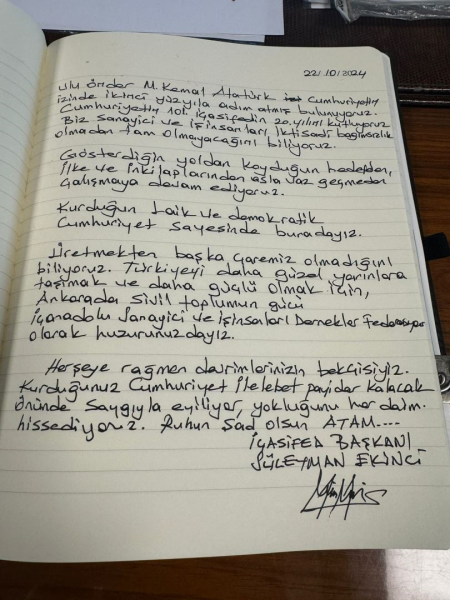 22/10/2024
Ulu Önder M. Kemal Atatürk Cumhuriyetin
izinde ikinci yüzyıla adım atmış bulunuyoruz.
Cumhuriyetin 101. İçasifedin 20. yılını kutluyoruz
Biz sanayici ve işinsanları İktisadi bağımsızlık
olmadan tam olmayacağını biliyoruz.
Gösterdiğin yoldan koyduğun hedeften,
İlke ve İnkilaplarından asla vaz geçmeden
çalışmaya devam ediyoruz.
Kurduğun laik ve demokratik
Cumhuriyet sayesinde buradayız.
Üretmekten başka çaremiz olmadığını
biliyoruz. Türkiyeyi daha güzel yarınlara
taşımak ve daha güçlü olmak için,
Ankarada sivil toplumun gücü
İçanadolu Sanayici ve işinsanları Dernekler Federasyonu
olarak huzurunuzdayız.
Herşeye rağmen devrimlerinizin bekçisiyiz.
Kurduğunuz Cumhuriyet İlelebet payidar kalacak
önünde saygıyla eyiliyor, yokluğunu her daim
hissediyoruz. Ruhun Şad olsun ATAM....
İÇASİFED BAŞKANI
SÜLEYMAN EKİNCİ